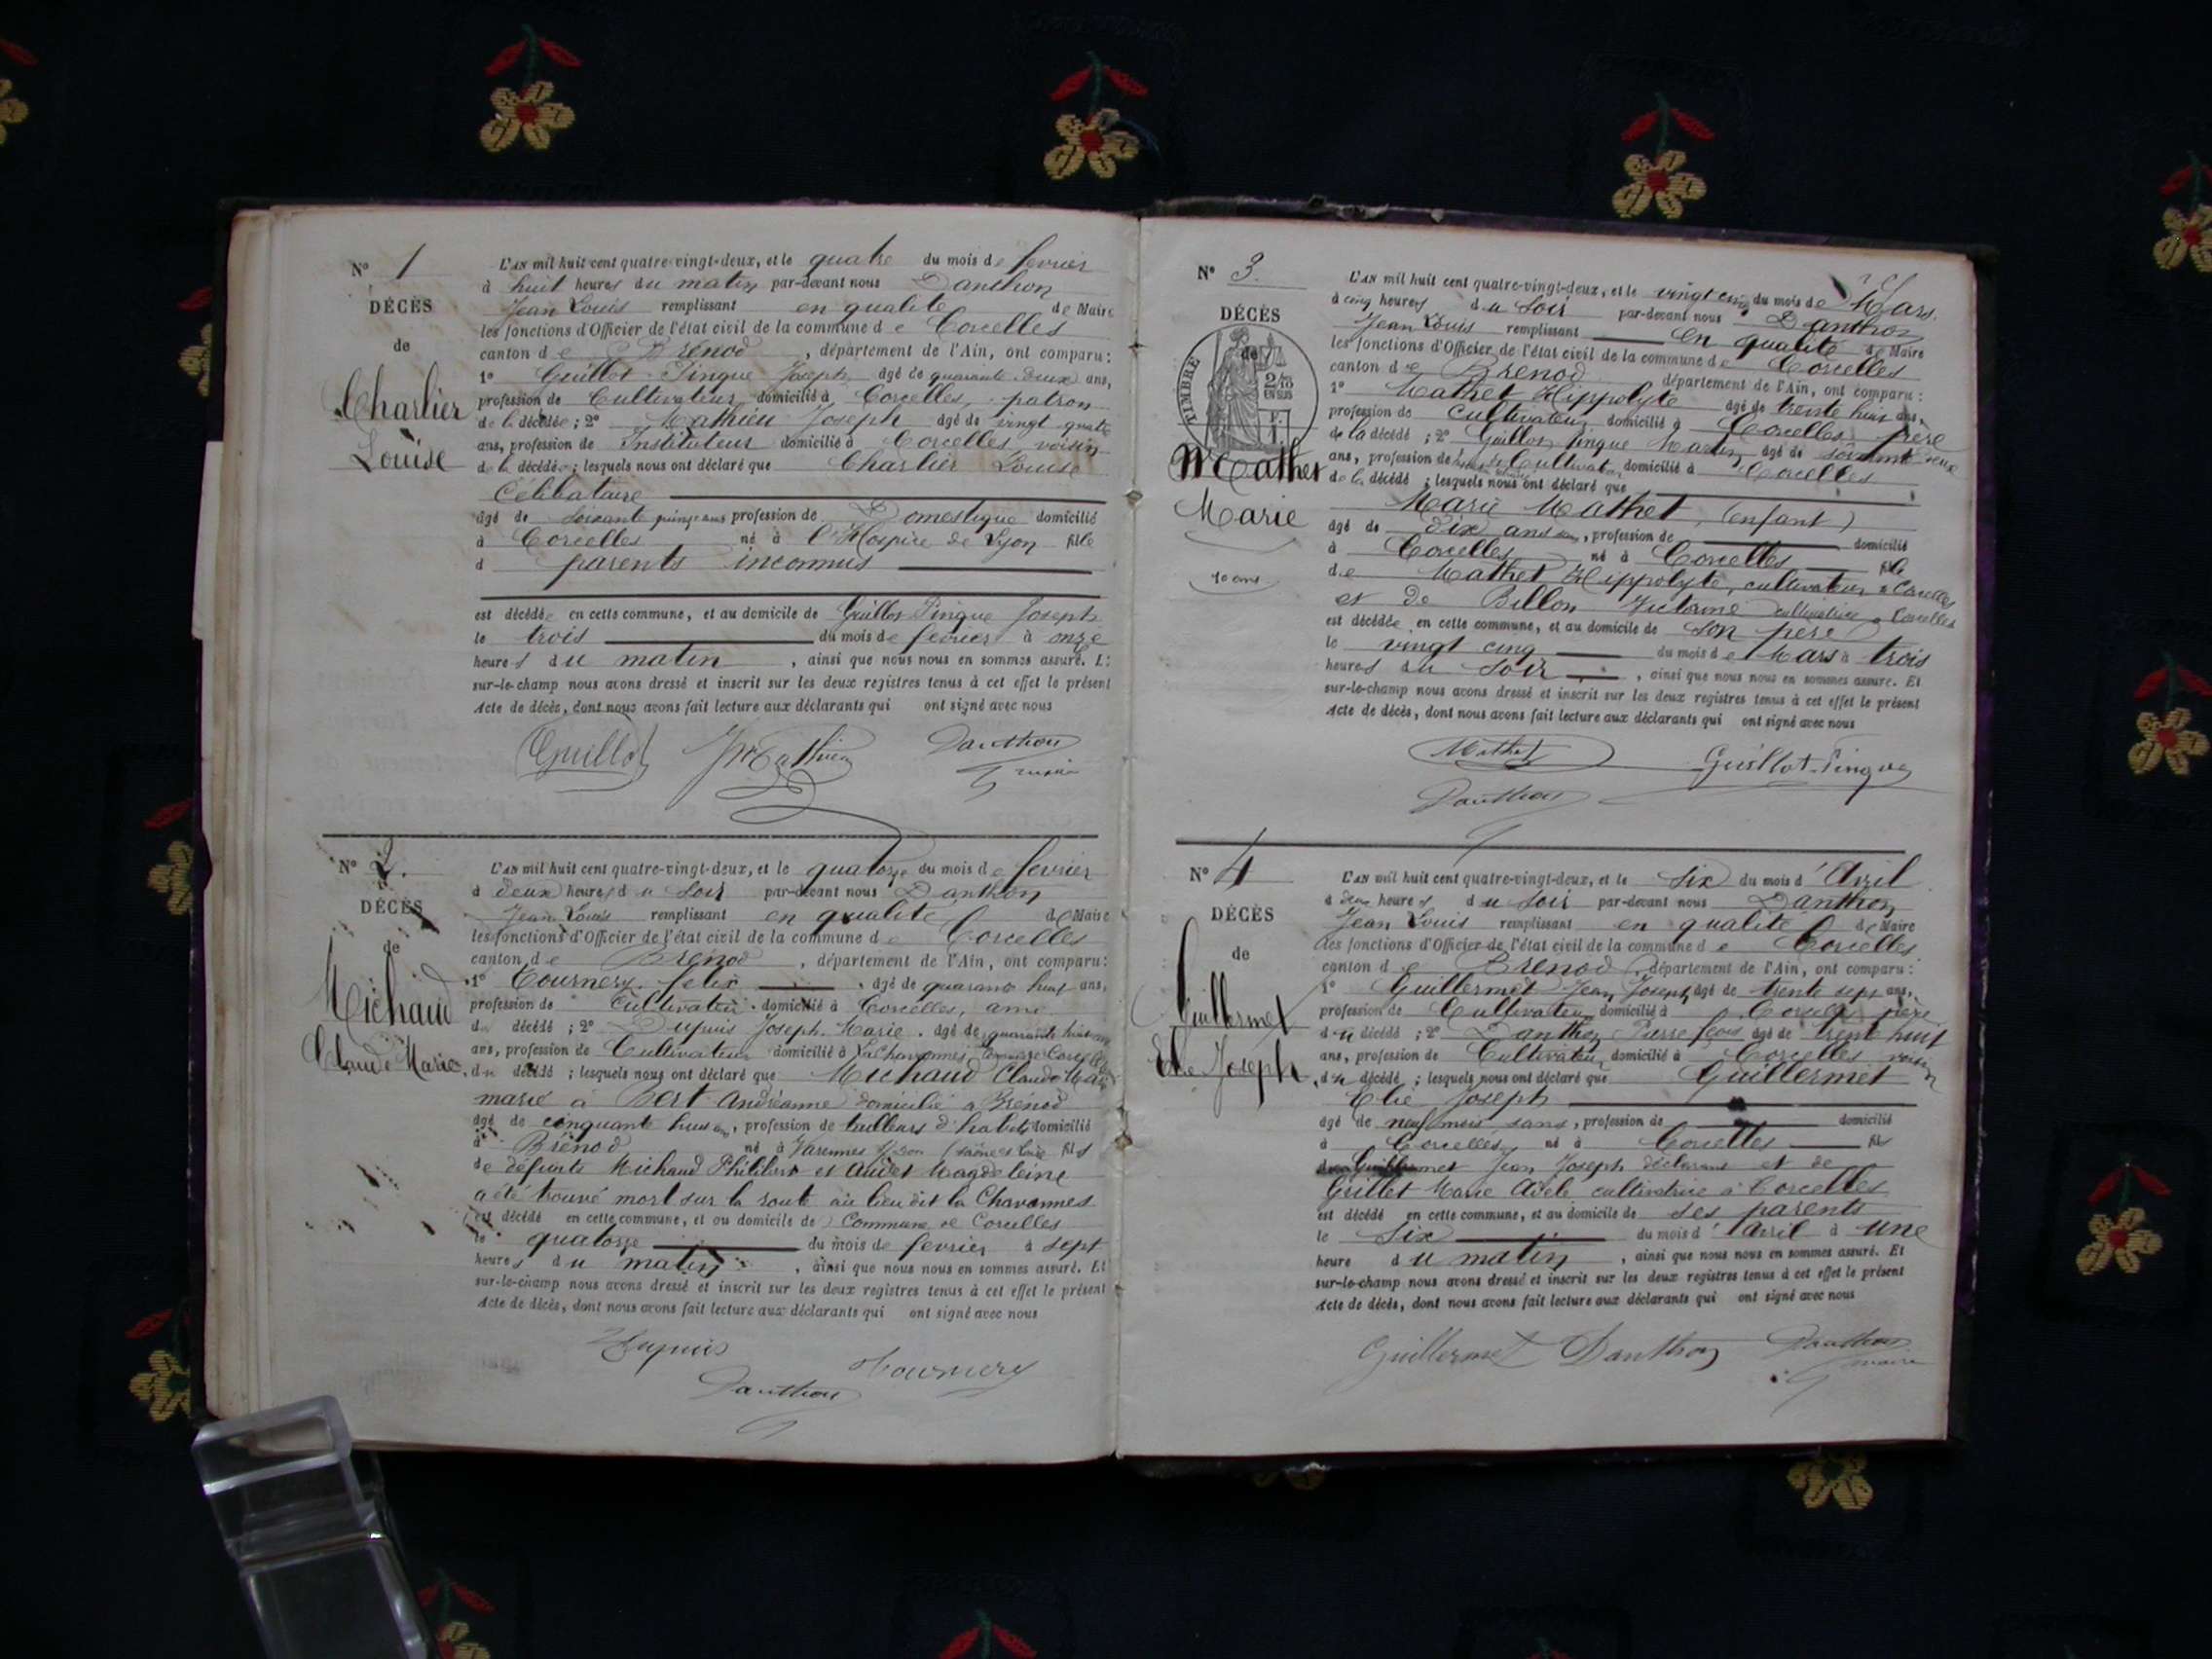 N° 1
DÉCÈS
de
Charlier
Louise
L'AN mil huit cent quatre-vingt-deux, et le quatre du mois de fevrier
à huit heures du matin par-devant nous Danthon
Jean Louis remplissant en qualité de Maire
les fonctions d'Officier de l'état civil de la commune de Corcelles
canton de Brénod, département de l'Ain, ont comparu:
1° Guillot Pingue Joseph âgé de quarante deux ans,
profession de Cultivateur domicilié à Corcelles, patron
de la décédée; 2° Mathieu Joseph âgé de vingt quatre
ans, profession de Instituteur domicilié à Corcelles, voisin
de la décédée; lesquels nous ont déclaré que Charlier Louise
Célibataire
âgé de soixante quinze ans profession de Domestique domicilié
à Corcelles né à l'Hospice de Lyon fille
d parents inconnus
est décédée en cette commune, et au domicile de Guillot Pingue Joseph
le trois du mois de fevrier à onze
heures du matin, ainsi que nous nous en sommes assuré. Et
sur-le-champ nous avons dressé et inscrit sur les deux registres tenus à cet effet le présent
Acte de décès, dont nous avons fait lecture aux déclarants qui ont signé avec nous
Guillot JMathieu Danthon
maire
N° 2.
DÉCÈS
de
Michaud
Claude Marie
L'AN mil huit cent quatre-vingt-deux, et le quatorze du mois de fevrier
à deux heures du soir par-devant nous Danthon
Jean Louis remplissant en qualité de Maire
les fonctions d'Officier de l'état civil de la commune de Corcelles
canton de Brénod, département de l'Ain, ont comparu:
1° Tournery felix, âgé de quarante huit ans,
profession de Cultivateur domicilié à Corcelles, ami
du décédé; 2° Dupuis Joseph Marie, âgé de quarante huit
ans, profession de Cultivateur domicilié à La Chavonnes
du décédé; lesquels nous ont déclaré que Michaud Claude Marie
marié à Bert Andréanne domicilié à Brénod
âgé de cinquante huit ans, profession de tailleurs d'habits domicilié
à Brénod né à Varennes (Saône et Loire fils
de défunts Michaud Philibert et Audet Magdeleine
a été trouvé mort sur la route au lieu dit la Chavonnes
(est décédé en cette commune, et au domicile de) Commune de Corcelles
le quatorze du mois de fevrier à sept
heures du matin, ainsi que nous nous en sommes assuré. Et
sur-le-champ nous avons dressé et inscrit sur les deux registres tenus à cet effet le présent
Acte de décès, dont nous avons fait lecture aux déclarants qui ont signé avec nous
Dupuis
Tournery
Danthon
N° 3.
DÉCÈS
de
TIMBRE
2/10
EN SUS
Mathet
Marie
10 ans
L'AN mil huit cent quatre-vingt-deux, et le vingt cinq du mois de Mars
à cinq heures du soir par-devant nous Danthon
Jean Louis remplissant en qualité de Maire
les fonctions d'Officier de l'état civil de la commune de Corcelles
canton de Brenod département de l'Ain, ont comparu:
1° Mathet Hippolyte âgé de trente huit ans,
profession de cultivateur domicilié à Corcelles père
de la décédé; 2° Guillot Pingue Martin âgé de soixante deux
ans, profession de Cultivateur domicilié à Corcelles
de la décédé; lesquels nous ont déclaré que
Marie Mathet, (enfant)
âgé de dix ans, profession de domicilié
à Corcelles né à Corcelles fille
de Mathet Hippolyte, cultivateur à Corcelles
et de Billon cultivatrice à Corcelles
est décédée en cette commune, et au domicile de son père
le vingt cinq du mois de Mars à trois
heures du soir, ainsi que nous nous en sommes assuré. Et
sur-le-champ nous avons dressé et inscrit sur les deux registres tenus à cet effet le présent
Acte de décès, dont nous avons fait lecture aux déclarants qui ont signé avec nous
Mathet Guillot-Pingue
Danthon
N° 4
DÉCÈS
de
Guillermet
Elie Joseph
L'AN mil huit cent quatre-vingt-deux, et le six du mois d'Avril
à deux heures du soir par-devant nous Danthon
Jean Louis remplissant en qualité de Maire
les fonctions d'Officier de l'état civil de la commune de Corcelles
canton de Brenod, département de l'Ain, ont comparu:
1° Guillermet Jean Joseph âgé de trente sept ans,
profession de Cultivateur domicilié à Corcelles père
du décédé; 2° Danthon Pierre fçois âgé de trente huit
ans, profession de Cultivateur domicilié à Corcelles voisin
du décédé; lesquels nous ont déclaré que Guillermet
Elie Joseph
âgé de neuf mois sans, profession de domicilié
à Corcelles né à Corcelles fils
de Guillermet Jean Joseph déclarant et de
Grillet Marie Adèle cultivatrice à Corcelles
est décédé en cette commune, et au domicile de ses parents
le six du mois d'avril à une
heure du matin, ainsi que nous nous en sommes assuré. Et
sur-le-champ nous avons dressé et inscrit sur les deux registres tenus à cet effet le présent
Acte de décès, dont nous avons fait lecture aux déclarants qui ont signé avec nous
Guillermet Danthon Danthon
maire